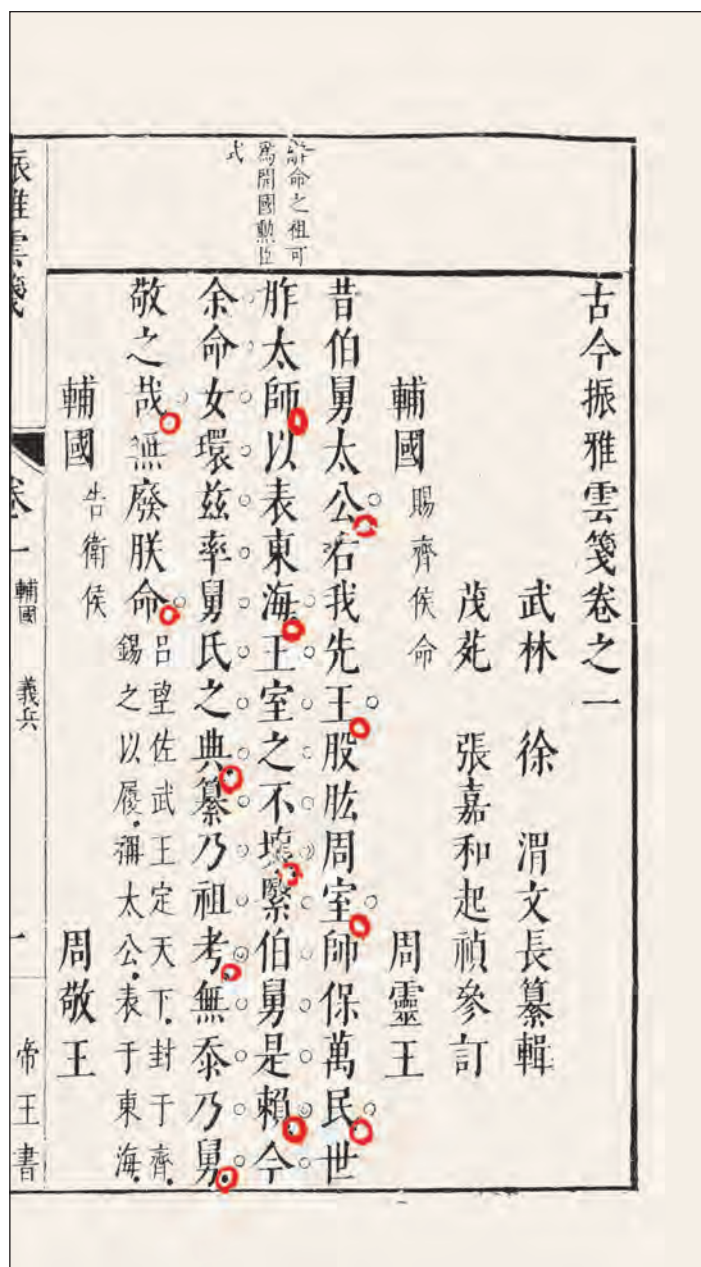 命之祖可
為開國勲臣
式
古今振雅雲箋卷之一
武林　徐　渭文長纂輯
茂苑　張嘉和起禎參訂
輔國　賜齊侯命　周靈王
昔伯舅太公右我先王股肱周室師保萬民世
胙太師以表東海王室之不壞繄伯舅是賴今
余命女環茲率舅氏之典纂乃祖考無忝乃舅
敬之哉無廢朕命
呂望佐武王定天下封于齊
錫之以履稱太公表于東海
輔國　告衛侯　周敬王
振雅雲箋　卷一　輔國　義兵　一　帝王書